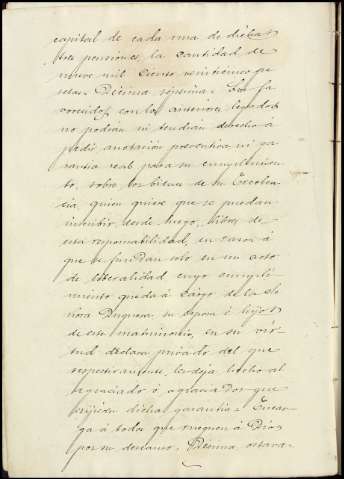 capital de cada una de dichas
tres pensiones, la cantidad de
nueve mil ciento veinticinco pe
setas. Décima séptima. Los fa
vorecidos con los anteriores legados
no podrán ni tendrán derecho á
pedir anotación preventiva, ni ga
rantía real para su cumplimien
to, sobre los bienes de su Excelen
cia, quien quiere que se puedan
inscribir desde luego, libres de
esta responsabilidad, en razon á
que se fundan solo en un acto
de liberalidad cuyo cumpli
miento queda á cargo de la Se
ñora Duquesa, su esposa é hijos
de este matrimonio, en su vir
tud declara privado del que
respectivamente les deja hecho al
agraciado ó agraciados que
exijieren dicha garantia. Encar
ga á todos que rueguen á Dios
por su descanso. Décima octava.